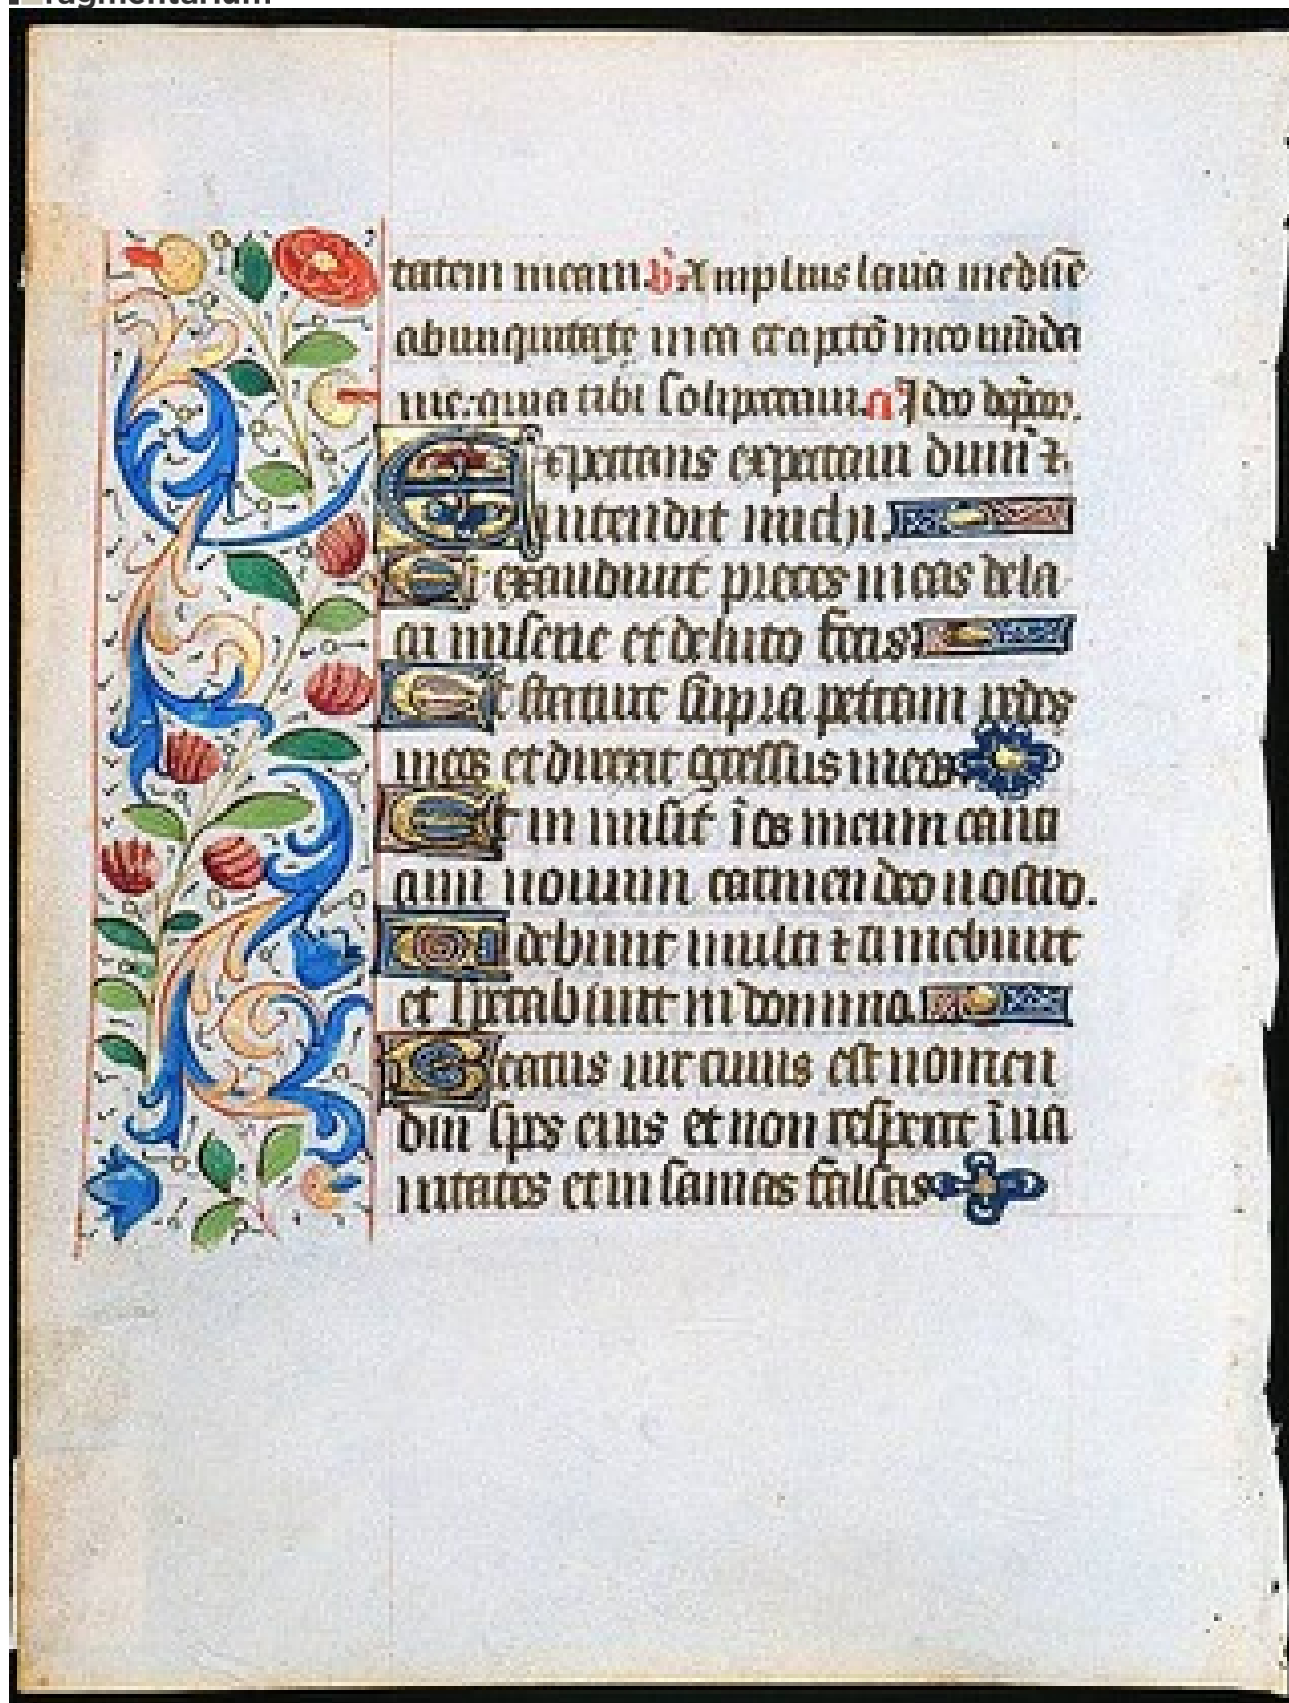 tatem meam v̕ Amplius laua me dñe
ab iniquitate mea et a pctō meo mūda
me. quia tibi soli peccaui. a Ideo
Expectans expectaui dum̄ ⁊
intendit michi.
Et exaudiuit preces meas de la
cu miserie et de luto fecis.
Et statuit supra petram pedes
meos et direxit gressus meos
Et in misit ī os meum canti
cum nouum carmen deo nostro.
Uidebunt multi ⁊ timebunt
et sperabunt in domino.
Beatus uir cuius est nomen
dm̄ spes eius et non respexit ī ua
nitates et in sanias falsas